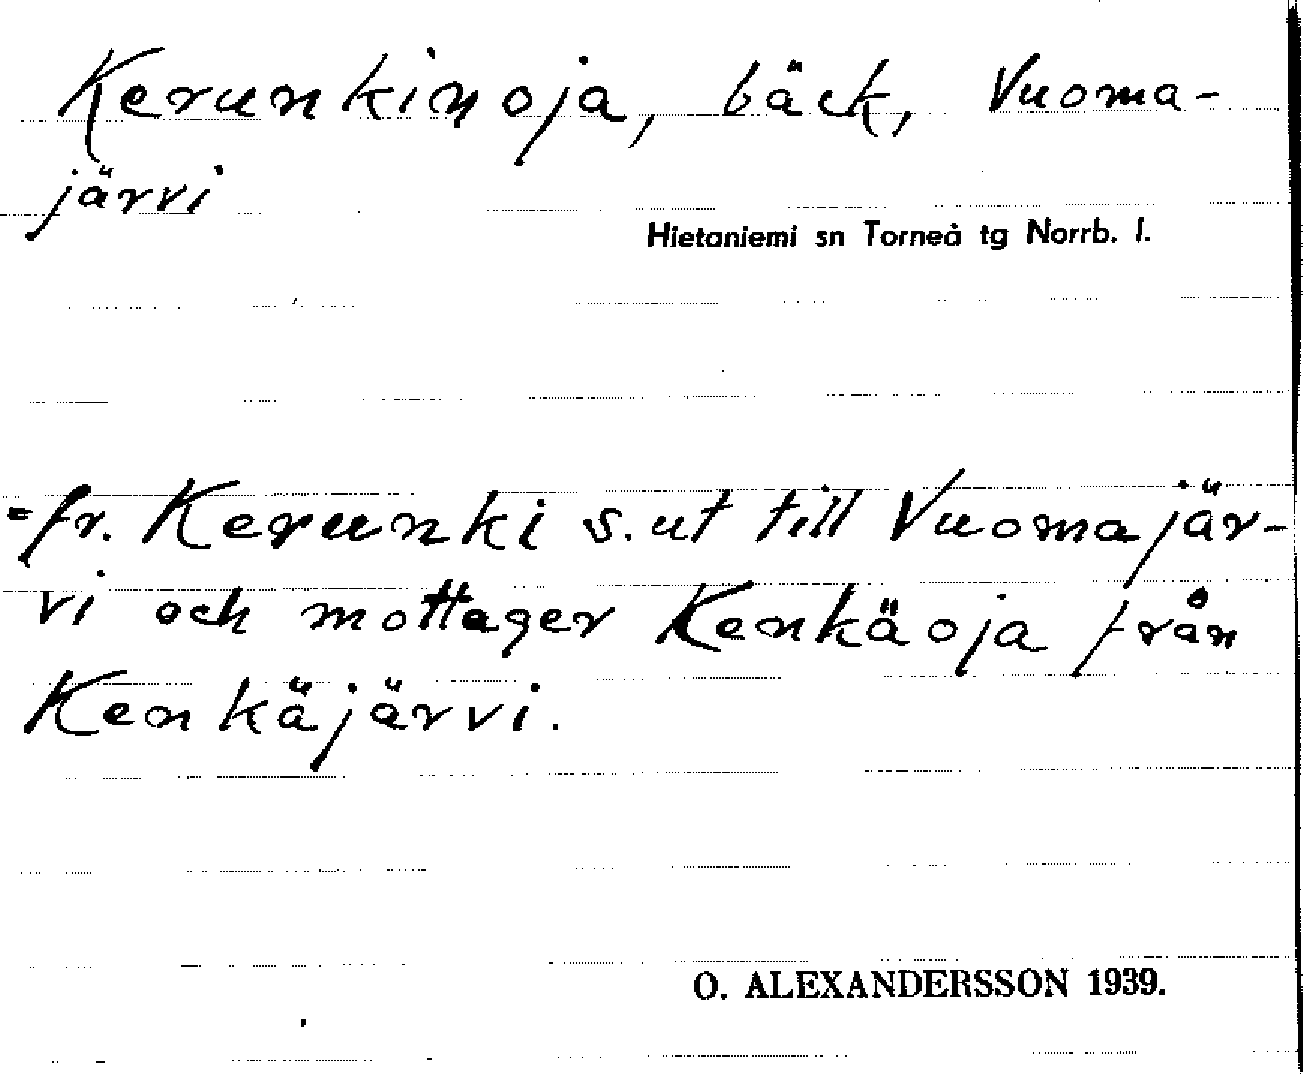 Kerunkinoja, bäck, Vuoma-
järvi
Hietaniemi sn Torneå tg Norrb. l.
=fr. Kerunki s. ut till Vuomajär-
vi och mottager Kenkäoja från
Kenkäjärvi.
O. ALEXANDERSSON 1939.